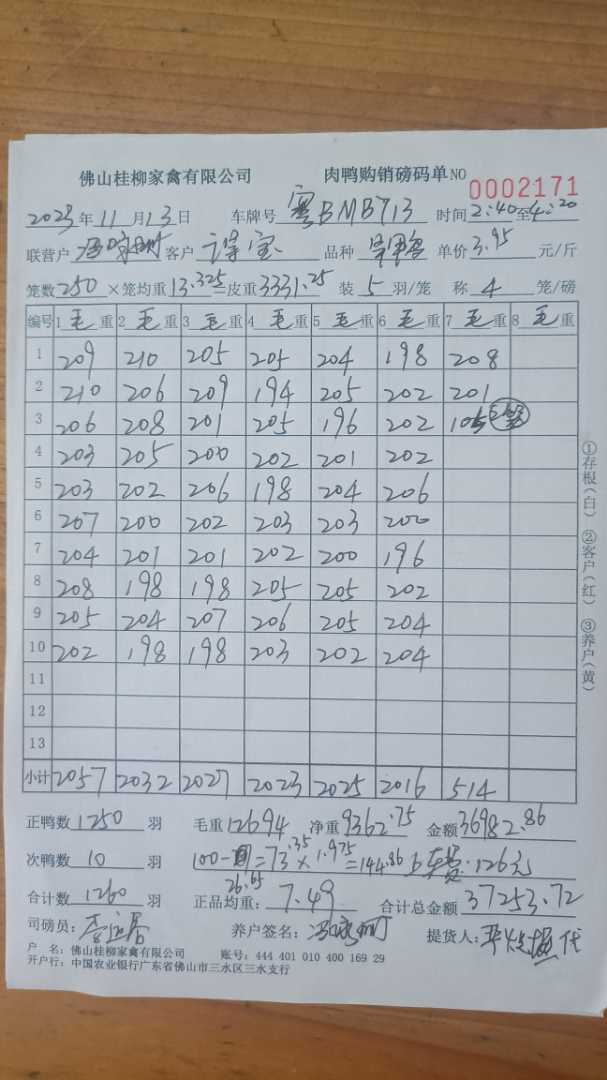 佛山桂柳家禽有限公司 肉鸭购销磅码单 NO 0002171
2023年11月13日 车牌号 粤BMB713 时间2:40至4:20
联营户 客户 品种 单价3.95元/斤
笼数250×笼均重13.325=皮重3331.25 装5羽/笼 称4笼/磅
编号 1毛重 2毛重 3毛重 4毛重 5毛重 6毛重 7毛重 8毛重
1 209 210 205 205 204 198 208
2 210 206 209 194 205 202 201
3 206 208 201 205 196 202 105
4 203 205 200 202 201 202
5 203 202 206 198 204 206
6 207 200 202 203 203 200
7 204 201 201 202 200 196
8 208 198 198 205 205 202
9 205 204 207 206 205 204
10 202 198 198 203 202 204
11
12
13
小计 2057 2032 2027 2023 2025 2016 514
正鸭数1250羽 毛重12694 净重9362.75 金额36982.86
次鸭数10羽 100-26.65=73.35×1.975=144.86 车费:126元
合计数1260羽 正品均重:7.49 合计总金额37253.72
司磅员: 养户签名: 提货人: 代
户 名:佛山桂柳家禽有限公司 账号:444 401 010 400 169 29
开户行:中国农业银行广东省佛山市三水区三水支行
①存根(白) ②客户(红) ③养户(黄)